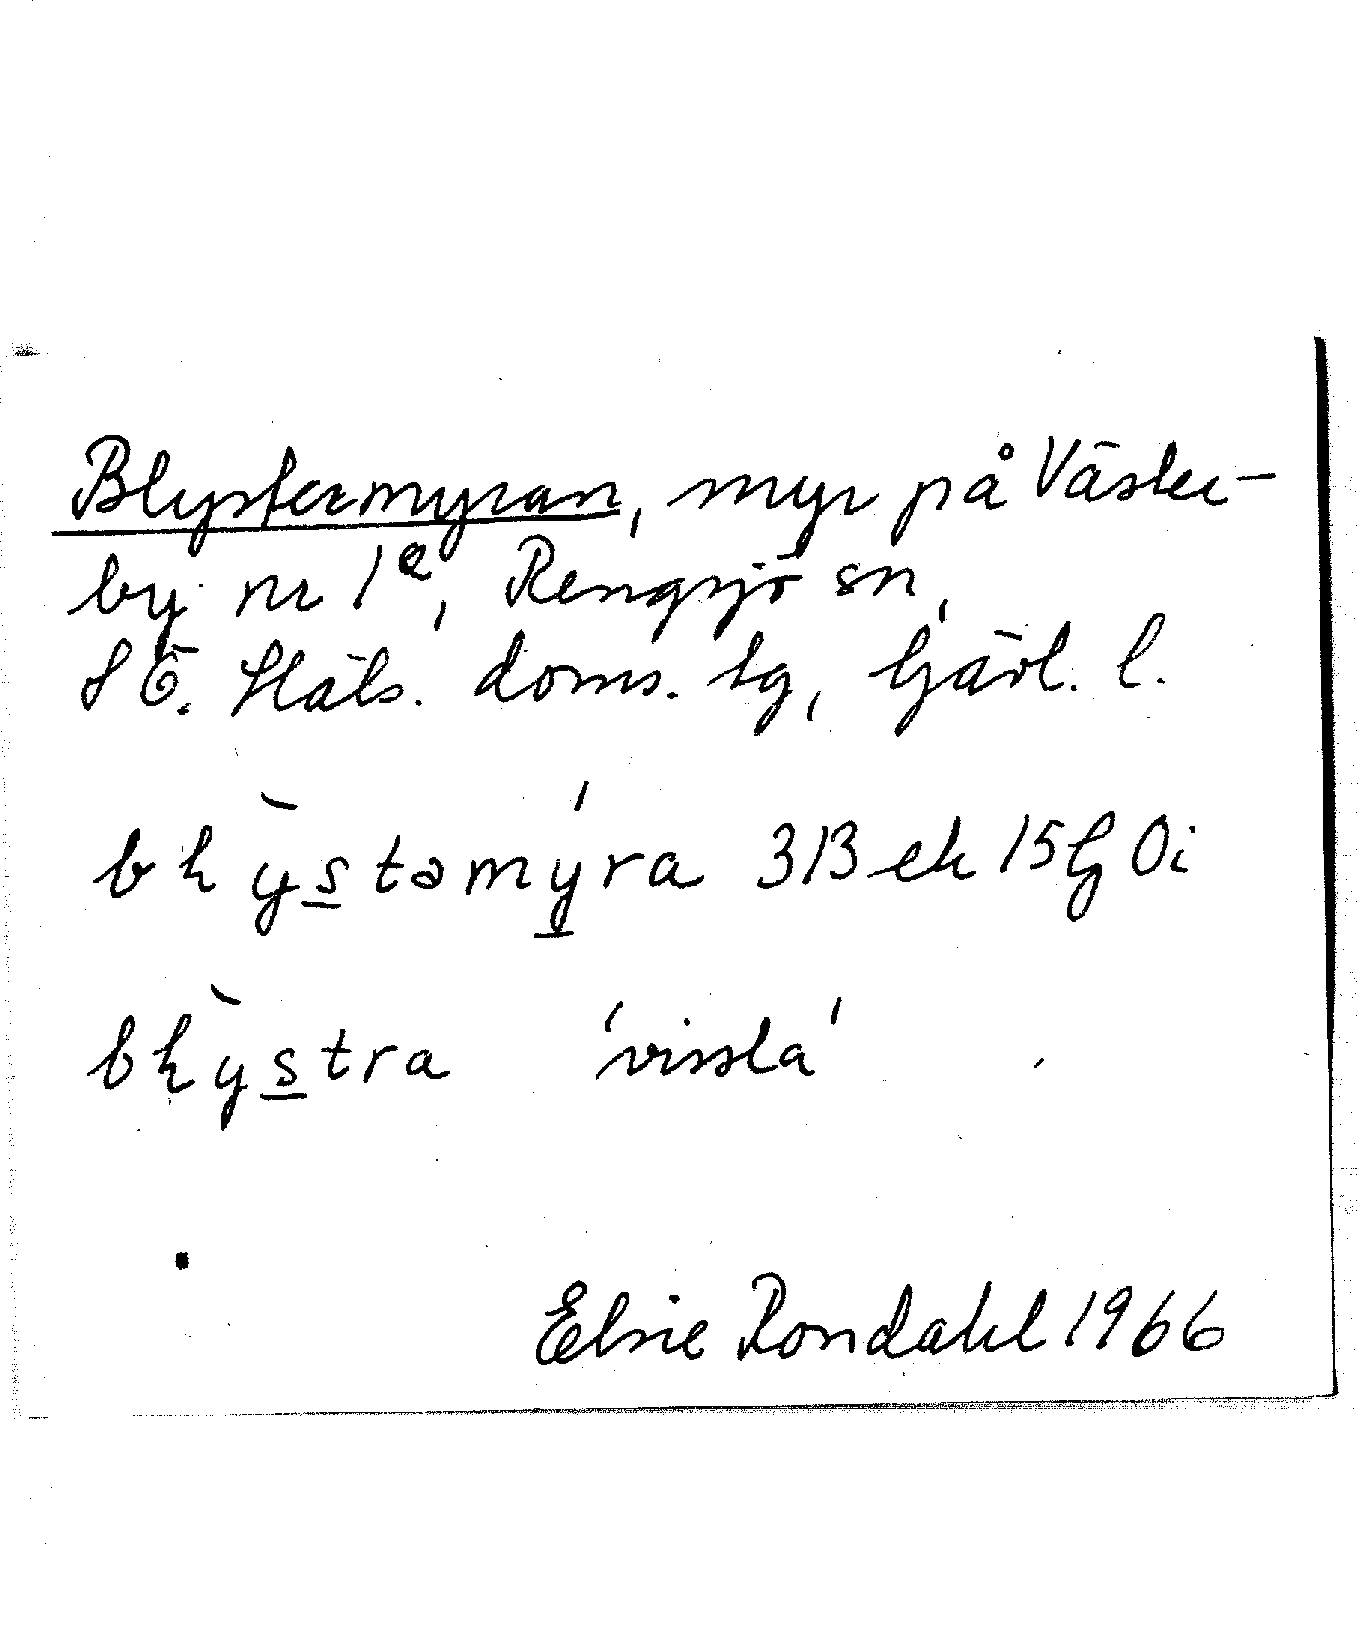 Blystermyran, myr på Väster-
by nr 1ª, Rengsjö sn,
SÖ. Häls. doms. tg, Gävl. l.
bḷỳstamý̲ra 313 ek 15G Oi
bḷỳstra 'vissla'
Elsie Rondahl 1966